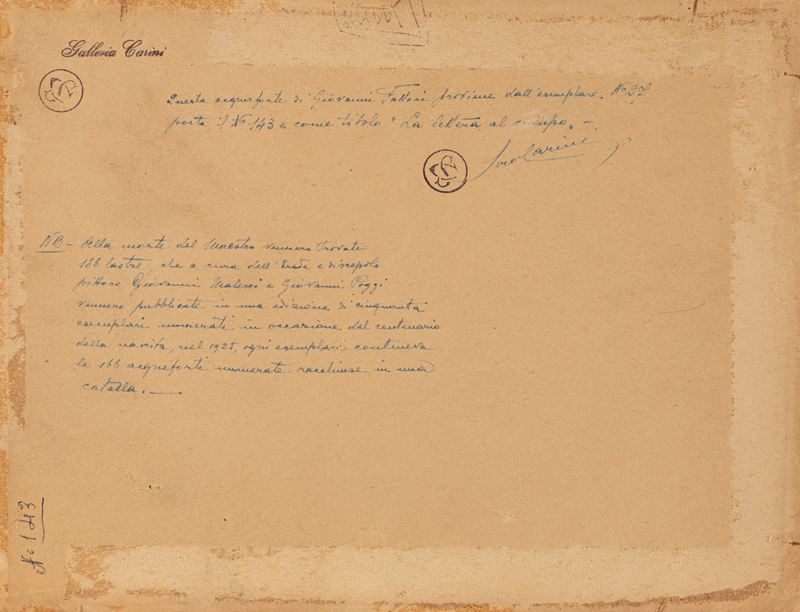 Galleria Carini
Questa acquaforte di Giovanni Fattori proviene dall'esemplare. N° 37
porta il N° 143 e come titolo "La lettera al campo" -
NB - Alla morte del Maestro vennero trovate
166 lastre, che a cura dell'Erede e discepolo
pittore Giovanni Malesci e Giovanni Poggi
vennero pubblicate in una edizione di cinquanta
esemplari numerati in occasione del centenario
della nascita, nel 1925, ogni esemplare conteneva
le 166 acqueforti numerate racchiuse in una
cartella. —
N° 143